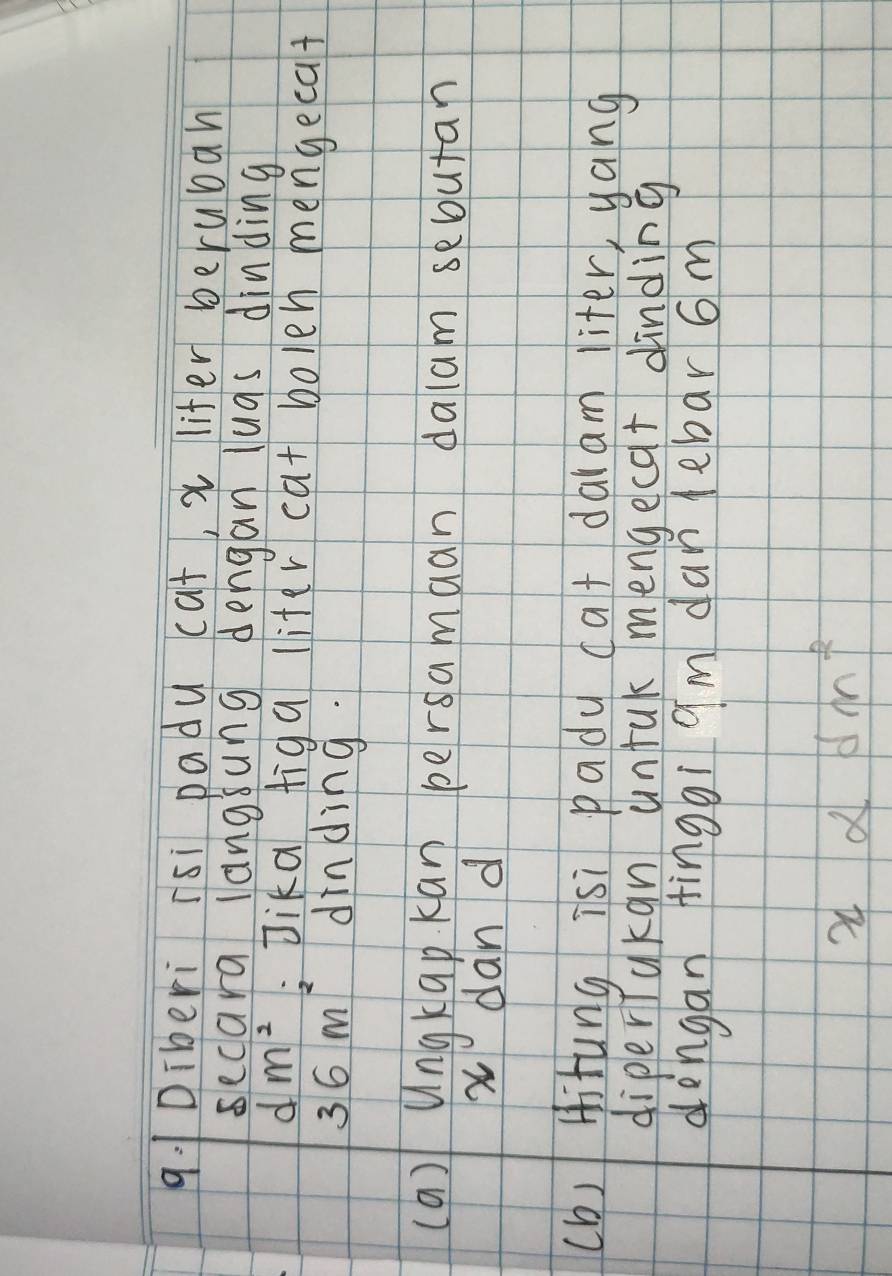 9. Diberi isi padu cat, x liter berubah
secara langsung dengan luas dinding
dm². Jika tiga liter cat boleh mengecat
36 m² dinding.
(a) Ungkapkan persamaan dalam sebutan
x dan d
(b) Hitung isi padu cat dalam liter, yang
diperlukan untuk mengecat dinding
dengan tinggi 9m dan lebar 6m
x ∝ dm²